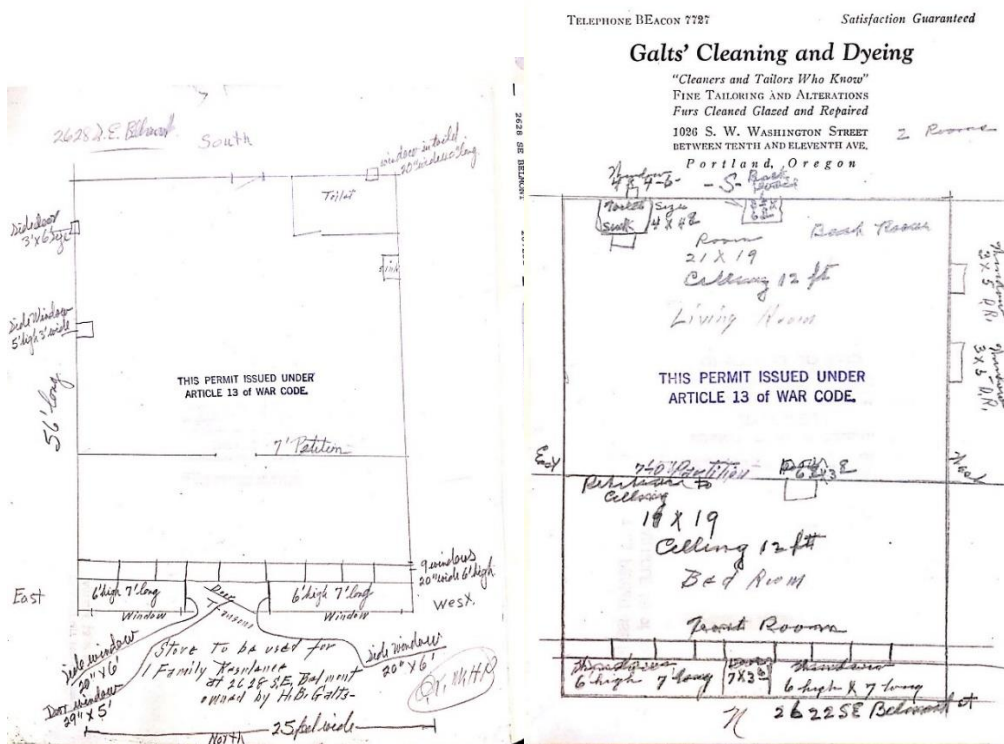 2628 S.E. Belmont
South
window in toild
20" wide 40" long
Toilet
Side door
3' X 6' Size
sink
Side Window
5' high 3' wide
56' long
THIS PERMIT ISSUED UNDER
ARTICLE 13 of WAR CODE.
7' Petition
9 windows
20" wide 6' high
East
6' high 7' long
Window
Door
Transom
6' high 7' long
Window
West.
Side window
20" X 6'
Door window
29" X 5'
Store To be used for
1 Family Residance
at 2628 S.E. Belmont
owned by H.B. Galts-
Side window
20" X 6'
25 feet wide
North
2628 SE BELMONT
TELEPHONE BEACON 7727
Satisfaction Guaranteed
Galts' Cleaning and Dyeing
"Cleaners and Tailors Who Know"
FINE TAILORING AND ALTERATIONS
Furs Cleaned Glazed and Repaired
1026 S. W. WASHINGTON STREET
BETWEEN TENTH AND ELEVENTH AVE.
Portland, Oregon
2 Rooms
Window
-S-
Back
Toilet
Sink
Size
Room
21 X 19
Celling 12 ft
Living Room
Back Room
Window
3 X 5
Window
3 X 5
THIS PERMIT ISSUED UNDER
ARTICLE 13 of WAR CODE.
East
West
7'-0" Partition
to
Cellong
19 X 19
Celling 12 ft
Bed Room
Front Room
Windows
6 high 7 long
Door
Windows
6 high X 7 long
N
2622 SE Belmont st